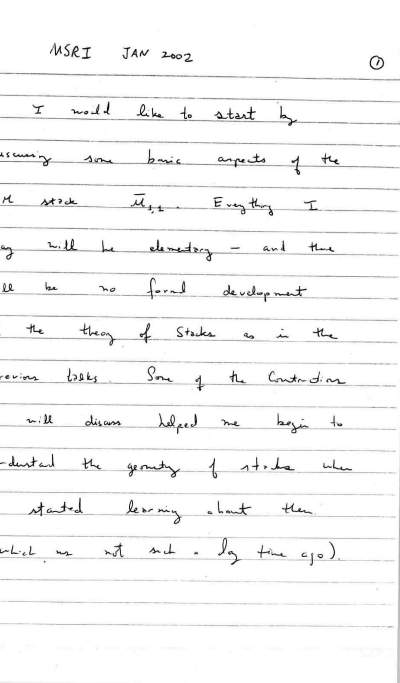 MSRI JAN 2002
①
I would like to start by
iscussing some basic aspects of the
M stack M̄₁,₁. Everything I
ay will be elementary – and there
ll be no formal development
the theory of Stacks as in the
revious talks. Some of the Constructions
will discuss helped me begin to
derstand the geometry of stacks when
started learning about them
which was not such a long time ago).